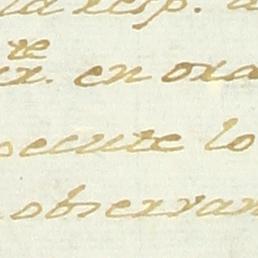 la resp.
te
en oxa
secute lo
observan